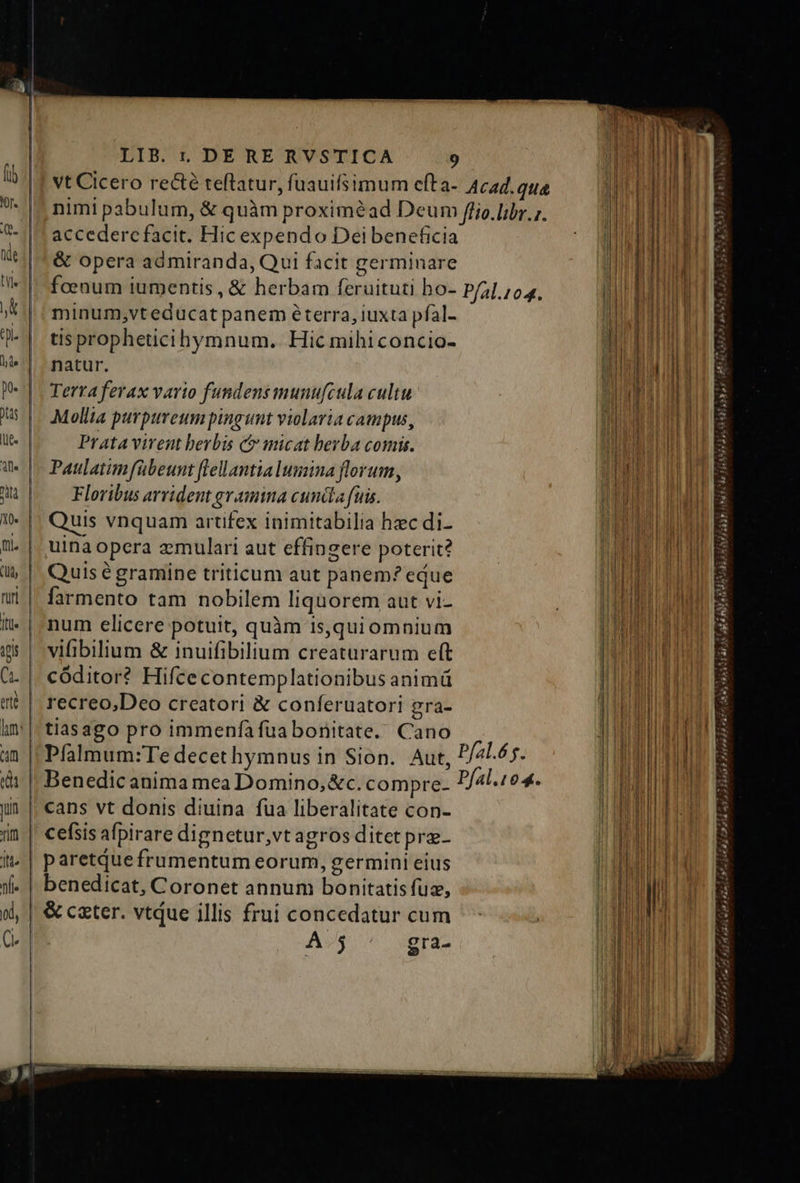 LIB. I. DE RE RVSTICA 9
vt Cicero rectè teſtatur, ſuauiſsimum eſt a- Acad. quæ
nimi pabulum, & quàm proximè ad Deum ſtio. libr. 1.
accedere facit. Hic expendo Dei beneficia
& opera admiranda, Qui facit germinare
fœnum iumentis, & herbam ſeruituti ho- Pſal. 104.
minum, vt educat panem è terra, iuxta pſal-
tis prophetici hymnum. Hic mihi concio-
natur.
Terra ferax vario fundens munuſcula cultu
Mollia purpureum pingunt violaria campus,
Prata virent herbis & micat herba comis.
Paulatim ſubeunt ſtellantia lumina florum,
Floribus arrident gramina cuncta ſuis.
Quis vnquam artifex inimitabilia hæc di-
uina opera æmulari aut effingere poterit?
Quis è gramine triticum aut panem? eque
ſarmento tam nobilem liquorem aut vi-
num elicere potuit, quàm is, qui omnium
viſibilium & inuiſibilium creaturarum eſt
códitor? Hiſce contemplationibus animū
recreo, Deo creatori & conſeruatori gra-
tias ago pro immenſa ſua bonitate. Cano
Pſalmum: Te decet hymnus in Sion. Aut, Pſal. 65.
Benedic anima mea Domino, &c. compre- Pſal. 104.
cans vt donis diuina ſua liberalitate con-
ceſsis aſpirare dignetur, vt agros ditet præ-
paretque frumentum eorum, germini eius
benedicat, Coronet annum bonitatis ſuæ,
& cæter. vtque illis frui concedatur cum
A 5 gra-